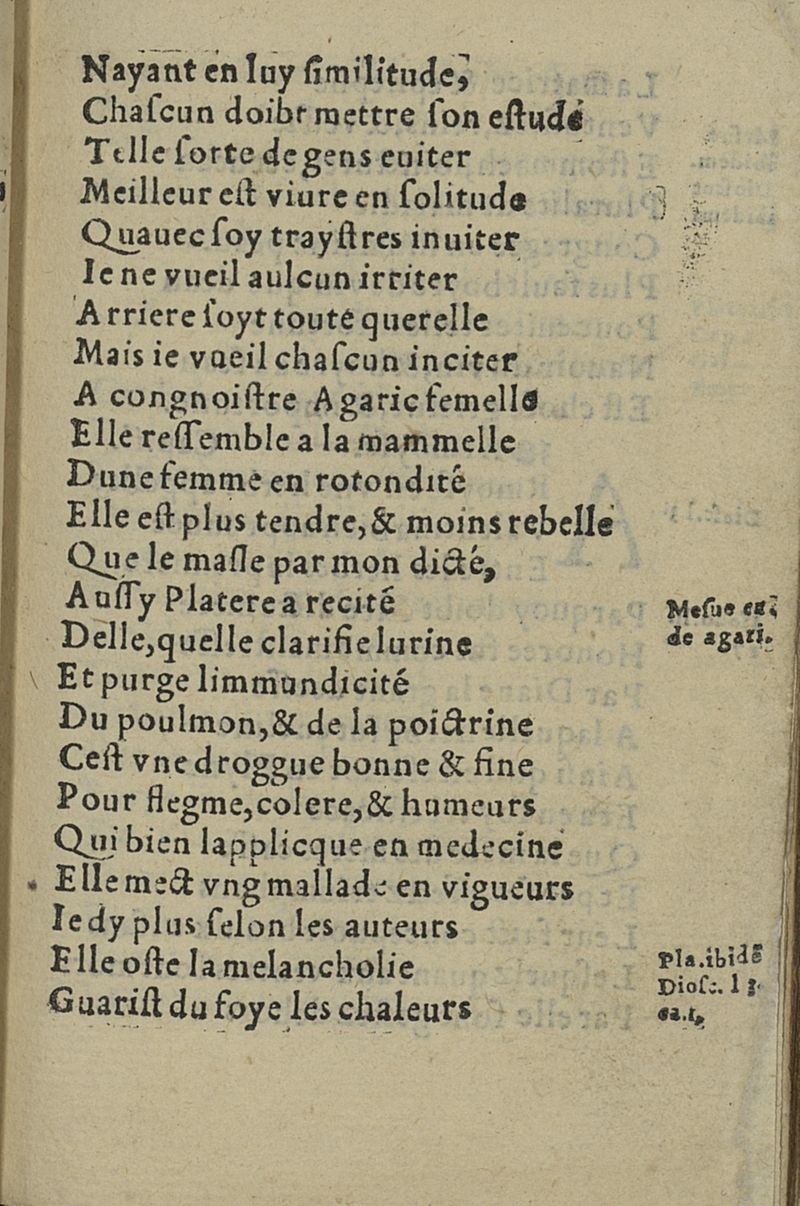 Nayant en luy ſimilitude,
Chaſcun doibt mettre ſon eſtude
Telle ſorte de gens euiter
Meilleur eſt viure en ſolitude
Quauec ſoy trayſtres inuiter
Ie ne vueil aulcun irriter
Arriere ſoyt toute querelle
Mais ie vueil chaſcun inciter
A congnoiſtre Agaric femelle
Elle reſſemble a la mammelle
Dune femme en rotondité
Elle eſt plus tendre, & moins rebelle
Que le maſle par mon dicté,
Auſſy Platere a recité
Delle, quelle clarifie lurine
Et purge limmundicité
Du poulmon, & de la poictrine
Ceſt vne droggue bonne & fine
Pour flegme, colere, & humeurs
Qui bien lapplicque en medecine
Elle mect vng mallade en vigueurs
Ie dy plus ſelon les auteurs
Elle oſte la melancholie
Guariſt du foye les chaleurs
Meſue
de agari.
Pla. ibidē
Dioſc. l 3.
ca. 1,